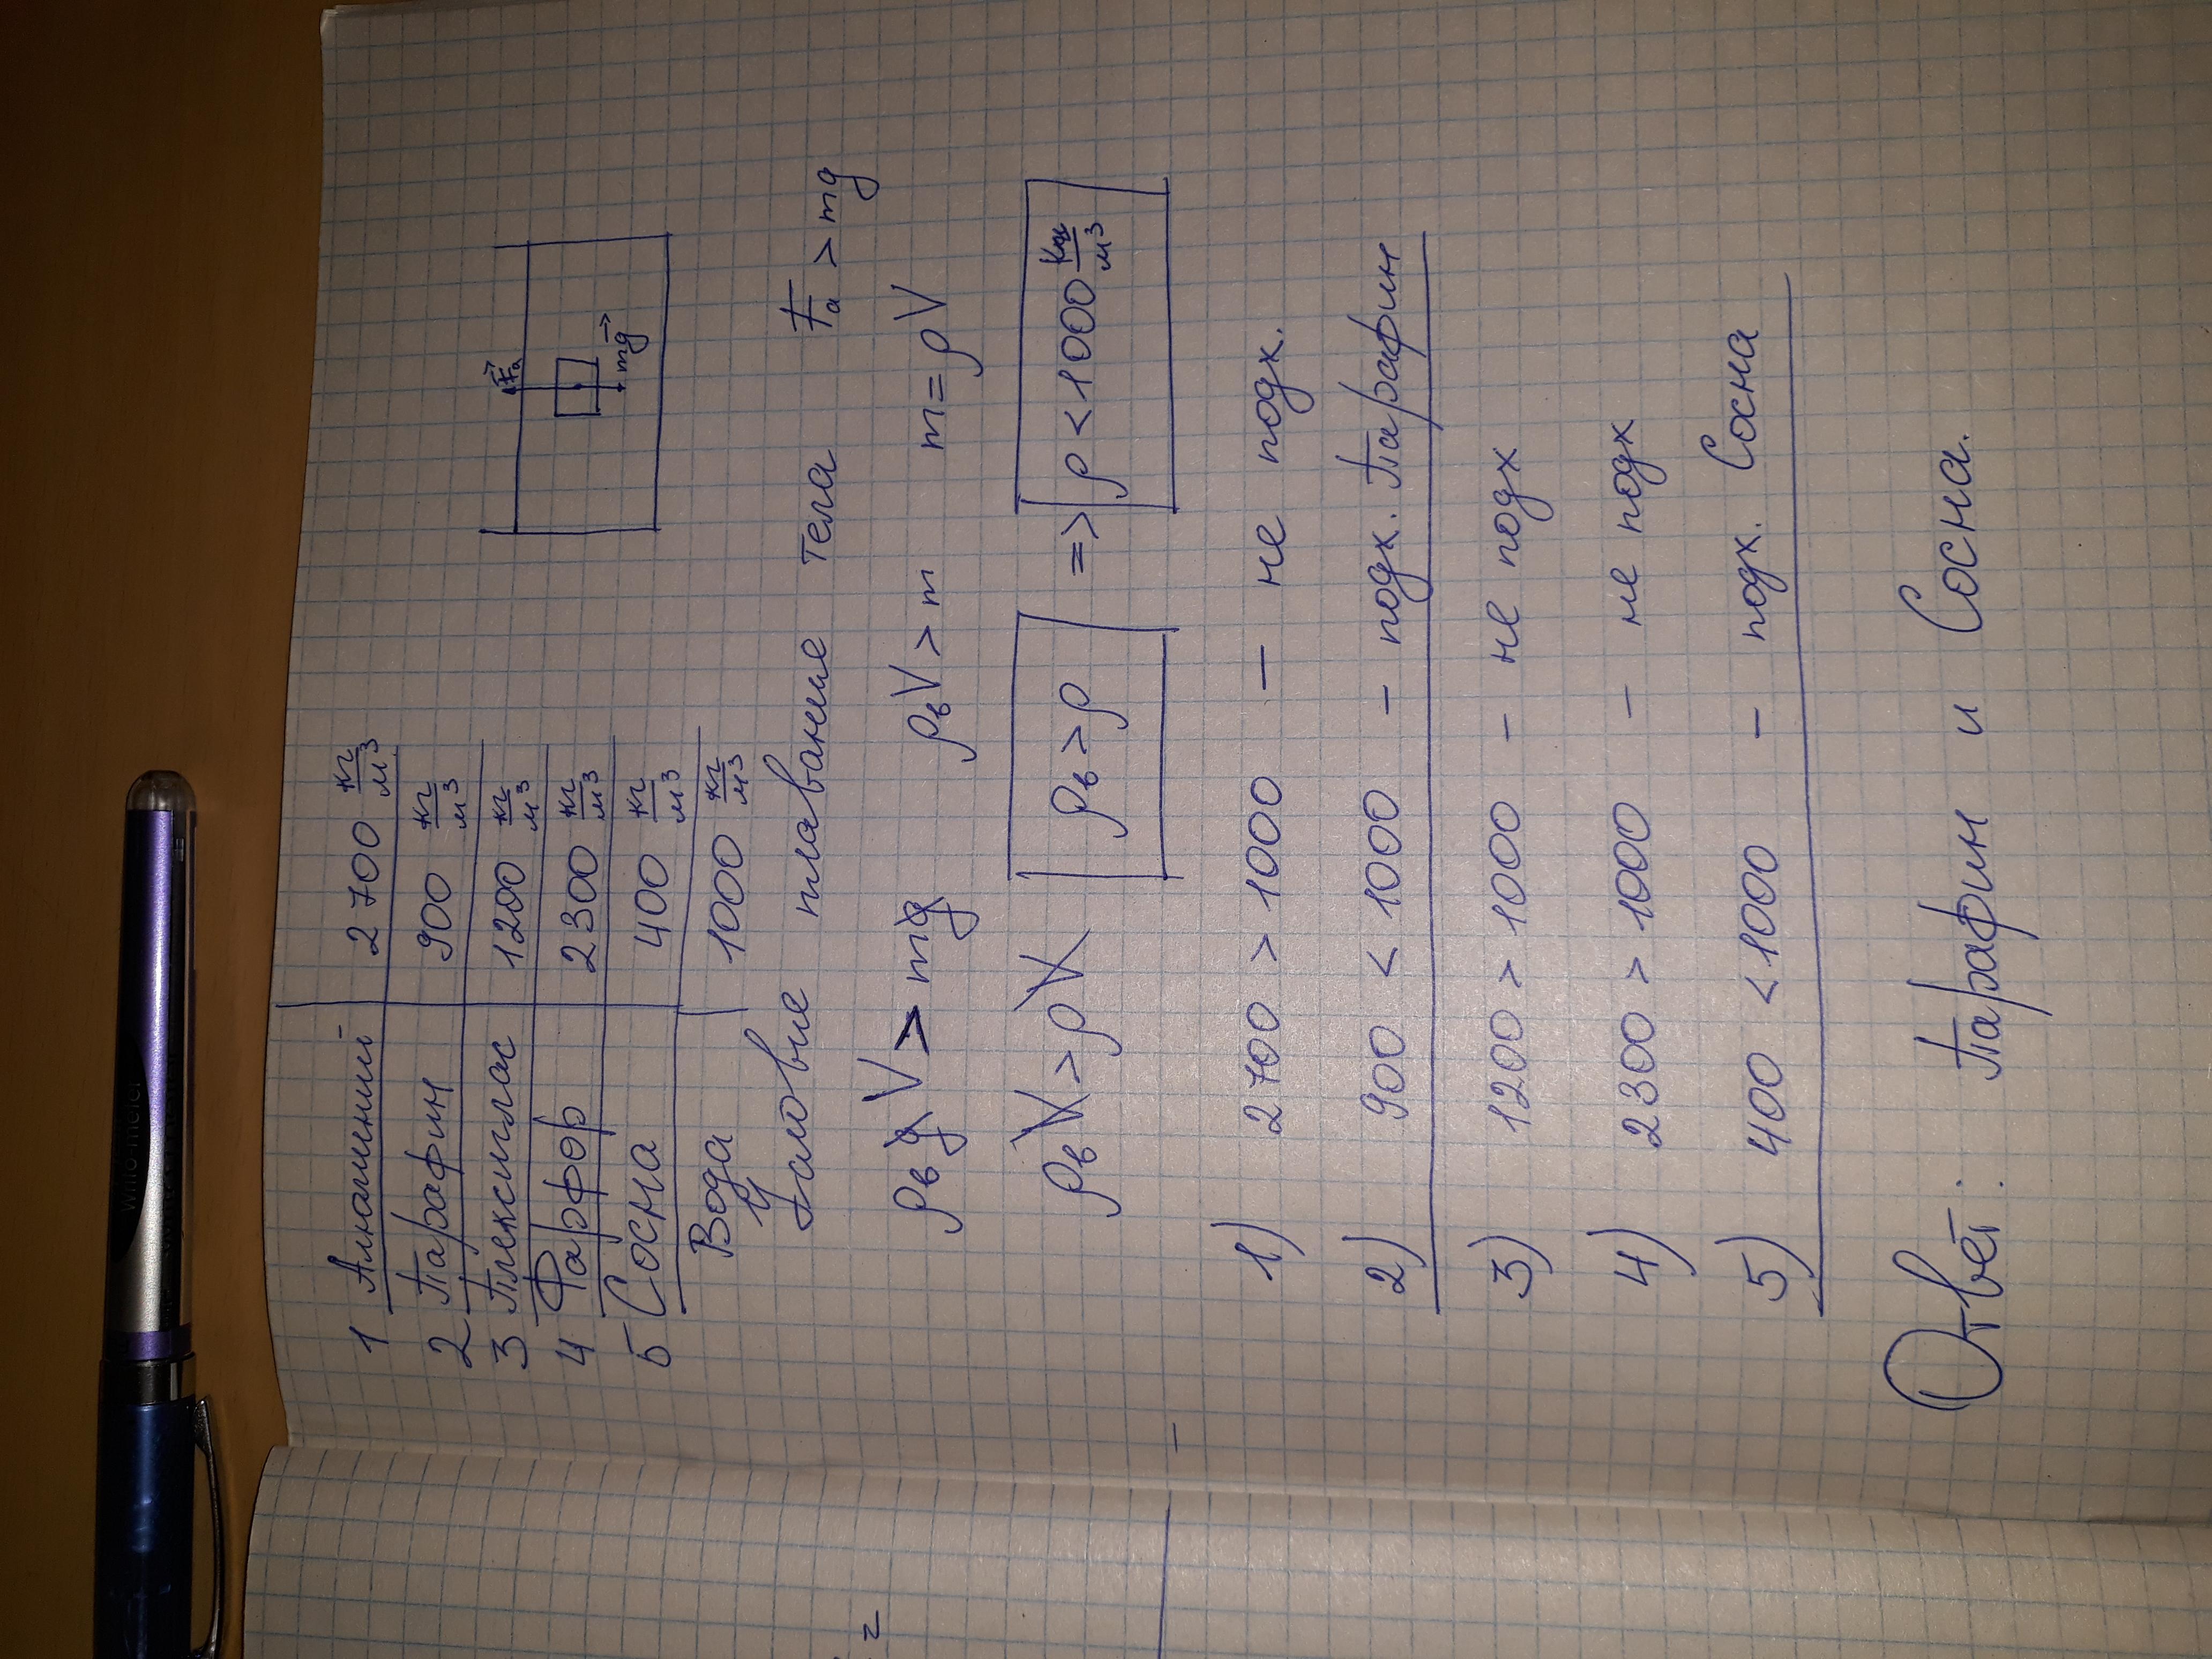 1 Алюминий 2700 кг/м³
2 Парафин 900 кг/м³
3 Плексиглас 1200 кг/м³
4 Фарфор 2300 кг/м³
5 Сосна 400 кг/м³
Вода 1000 кг/м³
Fₐ
mg
Условие плавание тела Fₐ > mg
ρв g V > mg ρв V > m m = ρV
ρв V > ρ V ρв > ρ => ρ < 1000 кг/м³
1) 2700 > 1000 – не подх.
2) 900 < 1000 – подх. Парафин
3) 1200 > 1000 – не подх
4) 2300 > 1000 – не подх
5) 400 < 1000 – подх. Сосна
Ответ: Парафин и Сосна.